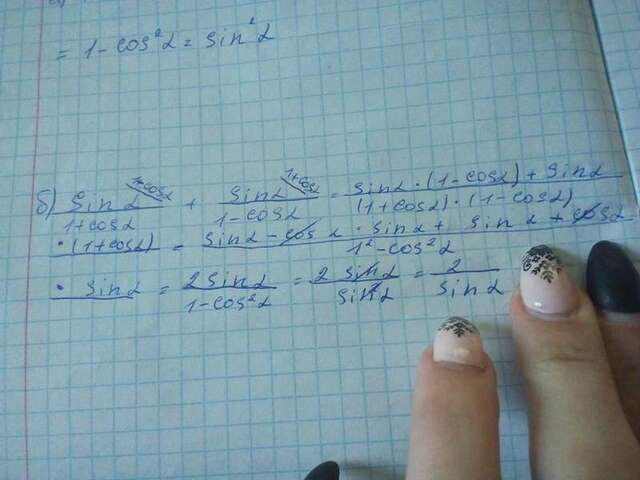 = 1 - cos²α = sin²α
б) sin α^(1-cosα) / (1+cosα) + sinα^(1+cosα) / (1-cosα) = (sinα · (1-cosα) + sinα
· (1+cosα)) / ((1+cosα) · (1-cosα)) = (sinα - cos α · sinα + sin α + cosα
· sinα) / (1² - cos²α) = 2 sinα / (1-cos²α) = 2 sinα / sin²α = 2 / sinα